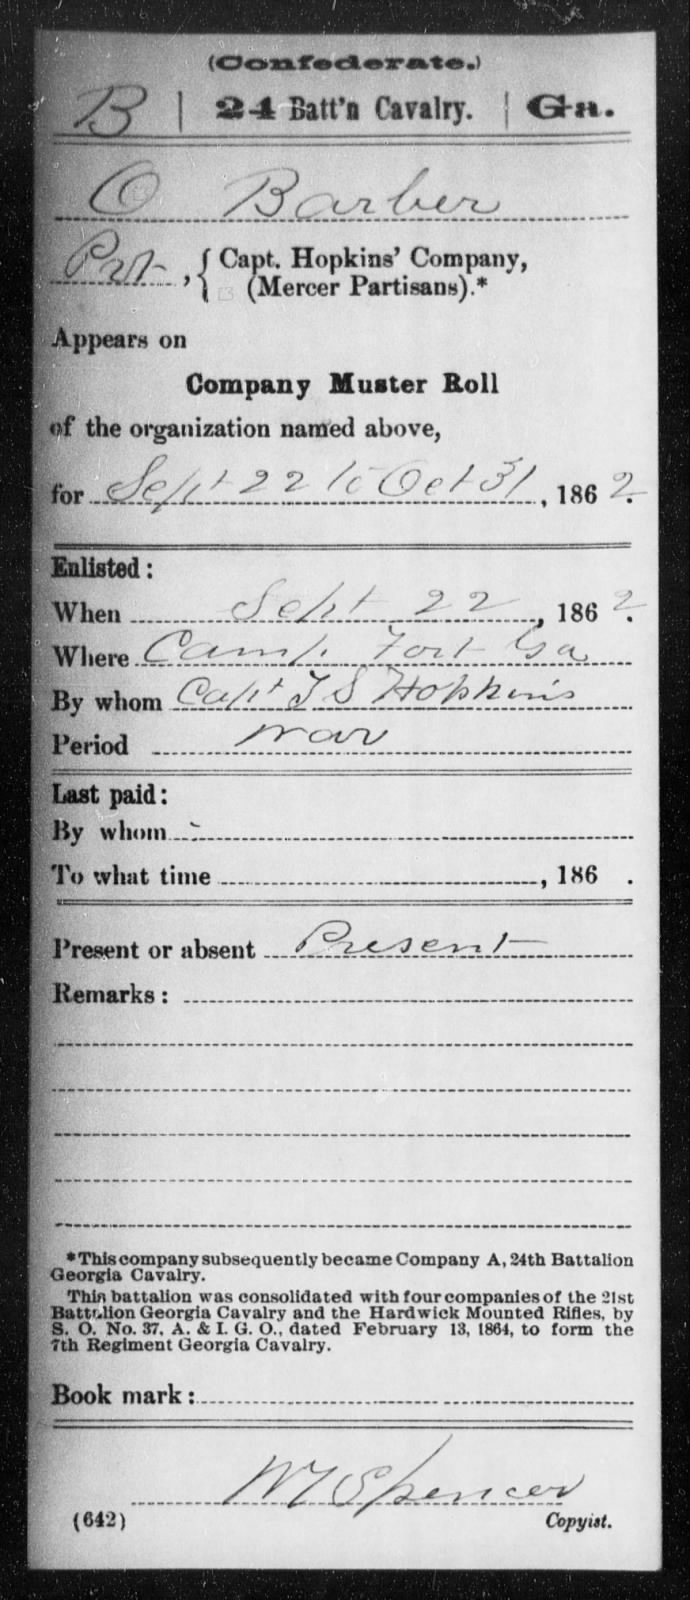 (Confederate.)
B | 24 Batt'n Cavalry. | Ga.
O Barber
Pvt, { Capt. Hopkins' Company,
(Mercer Partisans).*
Appears on
Company Muster Roll
of the organization named above,
for Sept 22 to Oct 31, 186 2.
Enlisted:
When Sept 22, 186 2.
Where Camp Fort Ga
By whom Capt T S Hopkins
Period war
Last paid:
By whom
To what time , 186 .
Present or absent Present
Remarks:
*This company subsequently became Company A, 24th Battalion
Georgia Cavalry.
This battalion was consolidated with four companies of the 21st
Battalion Georgia Cavalry and the Hardwick Mounted Rifles, by
S. O. No. 37, A. & I. G. O., dated February 13, 1864, to form the
7th Regiment Georgia Cavalry.
Book mark:
WT Spencer
(642) Copyist.